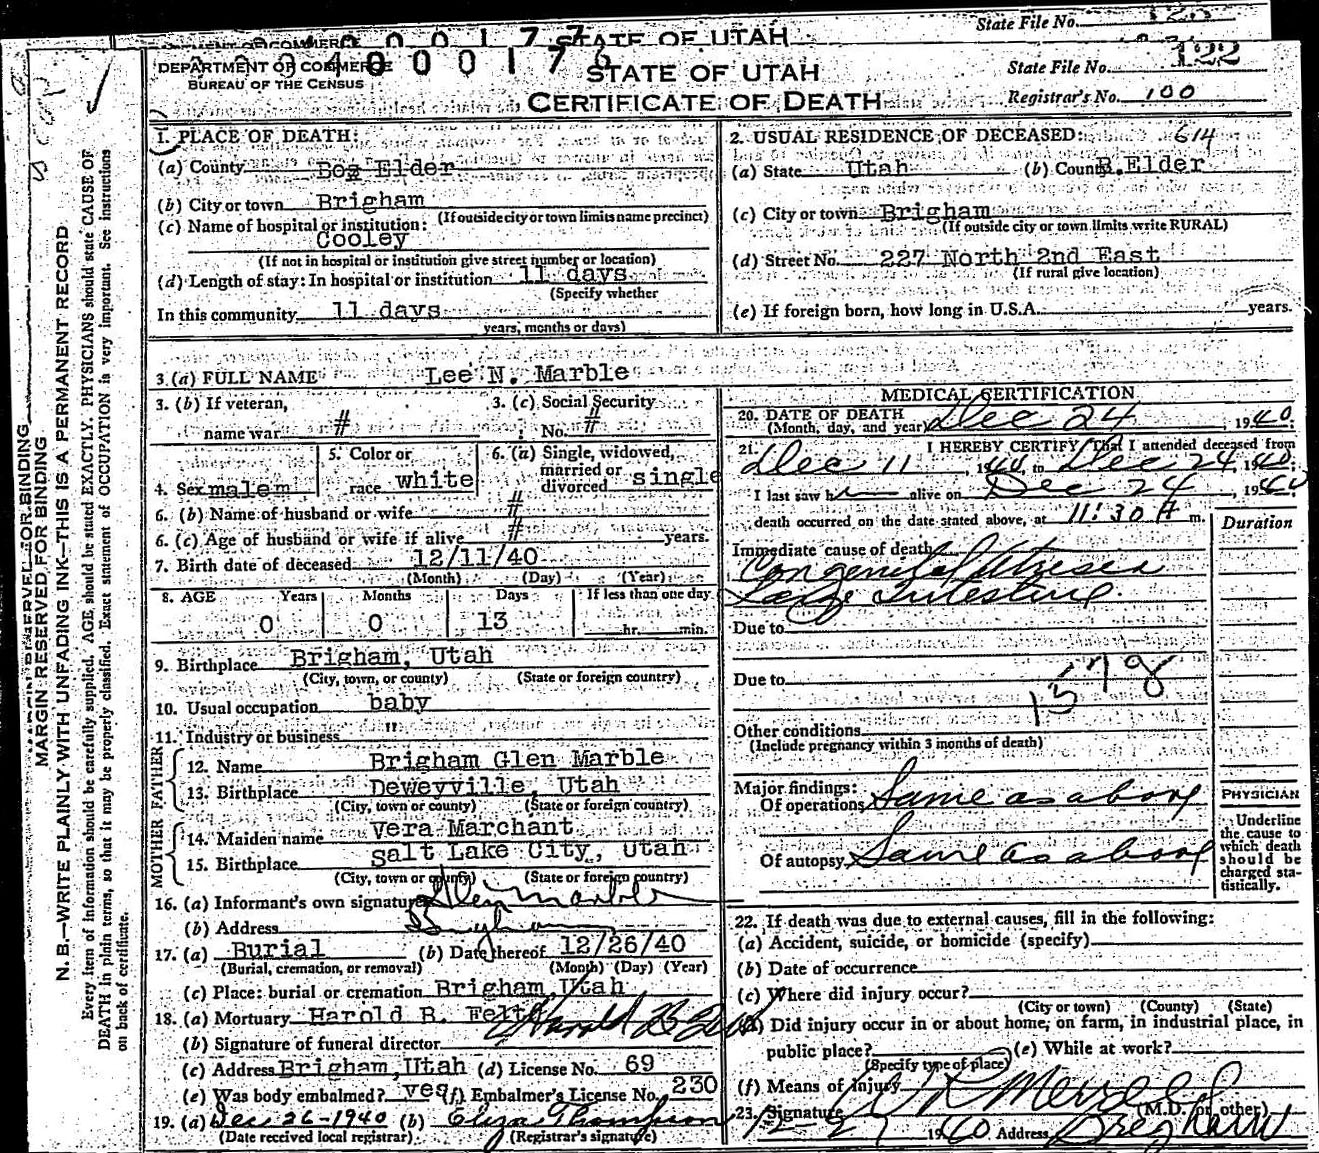 STATE OF UTAH
State File No. 123
4000177
DEPARTMENT OF COMMERCE
BUREAU OF THE CENSUS
4000176
STATE OF UTAH
CERTIFICATE OF DEATH
State File No. 122
Registrar's No. 100
1. PLACE OF DEATH:
(a) County Box Elder
(b) City or town Brigham
(If outside city or town limits name precinct)
(c) Name of hospital or institution:
Cooley
(If not in hospital or institution give street number or location)
(d) Length of stay: In hospital or institution 11 days
(Specify whether
In this community 11 days
years, months or days)
2. USUAL RESIDENCE OF DECEASED: 614
(a) State Utah (b) County B.Elder
(c) City or town Brigham
(If outside city or town limits write RURAL)
(d) Street No. 227 North 2nd East
(If rural give location)
(e) If foreign born, how long in U.S.A. years.
3. (a) FULL NAME Lee N. Marble
3. (b) If veteran,
name war #
3. (c) Social Security
No. #
4. Sex malem
5. Color or
race white
6. (a) Single, widowed,
married or
divorced single
6. (b) Name of husband or wife #
6. (c) Age of husband or wife if alive # years.
7. Birth date of deceased 12/11/40
(Month) (Day) (Year)
8. AGE Years Months Days If less than one day
0 0 13 hr. min.
9. Birthplace Brigham, Utah
(City, town, or county) (State or foreign country)
10. Usual occupation baby
11. Industry or business "
FATHER
12. Name Brigham Glen Marble
13. Birthplace Deweyville, Utah
(City, town or county) (State or foreign country)
MOTHER
14. Maiden name Vera Marchant
15. Birthplace Salt Lake City, Utah
(City, town or county) (State or foreign country)
16. (a) Informant's own signature Glen Marble
(b) Address Brigham
17. (a) Burial (b) Date thereof 12/26/40
(Burial, cremation, or removal) (Month) (Day) (Year)
(c) Place: burial or cremation Brigham, Utah
18. (a) Mortuary Harold B. Felt
(b) Signature of funeral director Harold B Felt
(c) Address Brigham, Utah (d) License No. 69
(e) Was body embalmed? yes (f) Embalmer's License No. 230
19. (a) Dec 26-1940 (b) Eliza Thompson
(Date received local registrar) (Registrar's signature)
MEDICAL CERTIFICATION
20. DATE OF DEATH
(Month, day, and year) Dec 24, 1940.
21. I HEREBY CERTIFY, That I attended deceased from
Dec 11, 1940, to Dec 24, 1940;
I last saw h alive on Dec 24, 1940;
death occurred on the date stated above, at 11:30 A m.
Duration
Immediate cause of death
Congenital Atresia
Large Intestine
Due to
Due to
157g
Other conditions
(Include pregnancy within 3 months of death)
Major findings:
Of operations Same as above
Of autopsy Same as above
PHYSICIAN
Underline
the cause to
which death
should be
charged sta-
tistically.
22. If death was due to external causes, fill in the following:
(a) Accident, suicide, or homicide (specify)
(b) Date of occurrence
(c) Where did injury occur?
(City or town) (County) (State)
(d) Did injury occur in or about home, on farm, in industrial place, in
public place? (e) While at work?
(Specify type of place)
(f) Means of Injury
23. Signature Merrell (M.D. or other)
12-27 1940 Address Brigham
MARGIN RESERVED FOR BINDING
N. B.—WRITE PLAINLY WITH UNFADING INK—THIS IS A PERMANENT RECORD
Every item of information should be carefully supplied. AGE should be stated EXACTLY. PHYSICIANS should state CAUSE OF
DEATH in plain terms, so that it may be properly classified. Exact statement of OCCUPATION is very important. See instructions
on back of certificate.